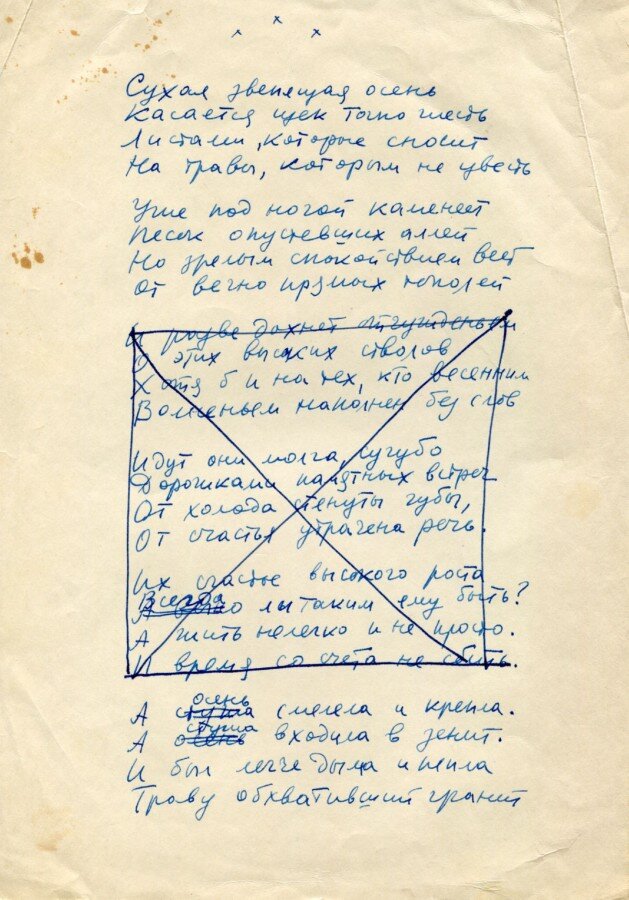 х х х
Сухая звенящая осень
Касается щек точно жесть
Листами, которые сносит
На травы, которым не цвесть
Уже под ногой каменеет
Песок опустевших аллей
Но зрелым спокойствием веет
От вечно прямых тополей
И разве дохнет отчужденьем
От этих высоких стволов
Хотя б и на тех, кто весенним
Волненьем наполнен без слов
Идут они молча, сугубо
Дорожками памятных встреч
От холода стянуты губы,
От счастья утрачена речь.
Их счастье высокого роста
Всегда
А ли таким ему быть?
А жить нелегко и не просто.
И время со счета не сбить.
осень
А стужа смелела и крепла.
стужа
А осень входила в зенит.
И был легче дыма и пепла
Траву обхвативший гранит